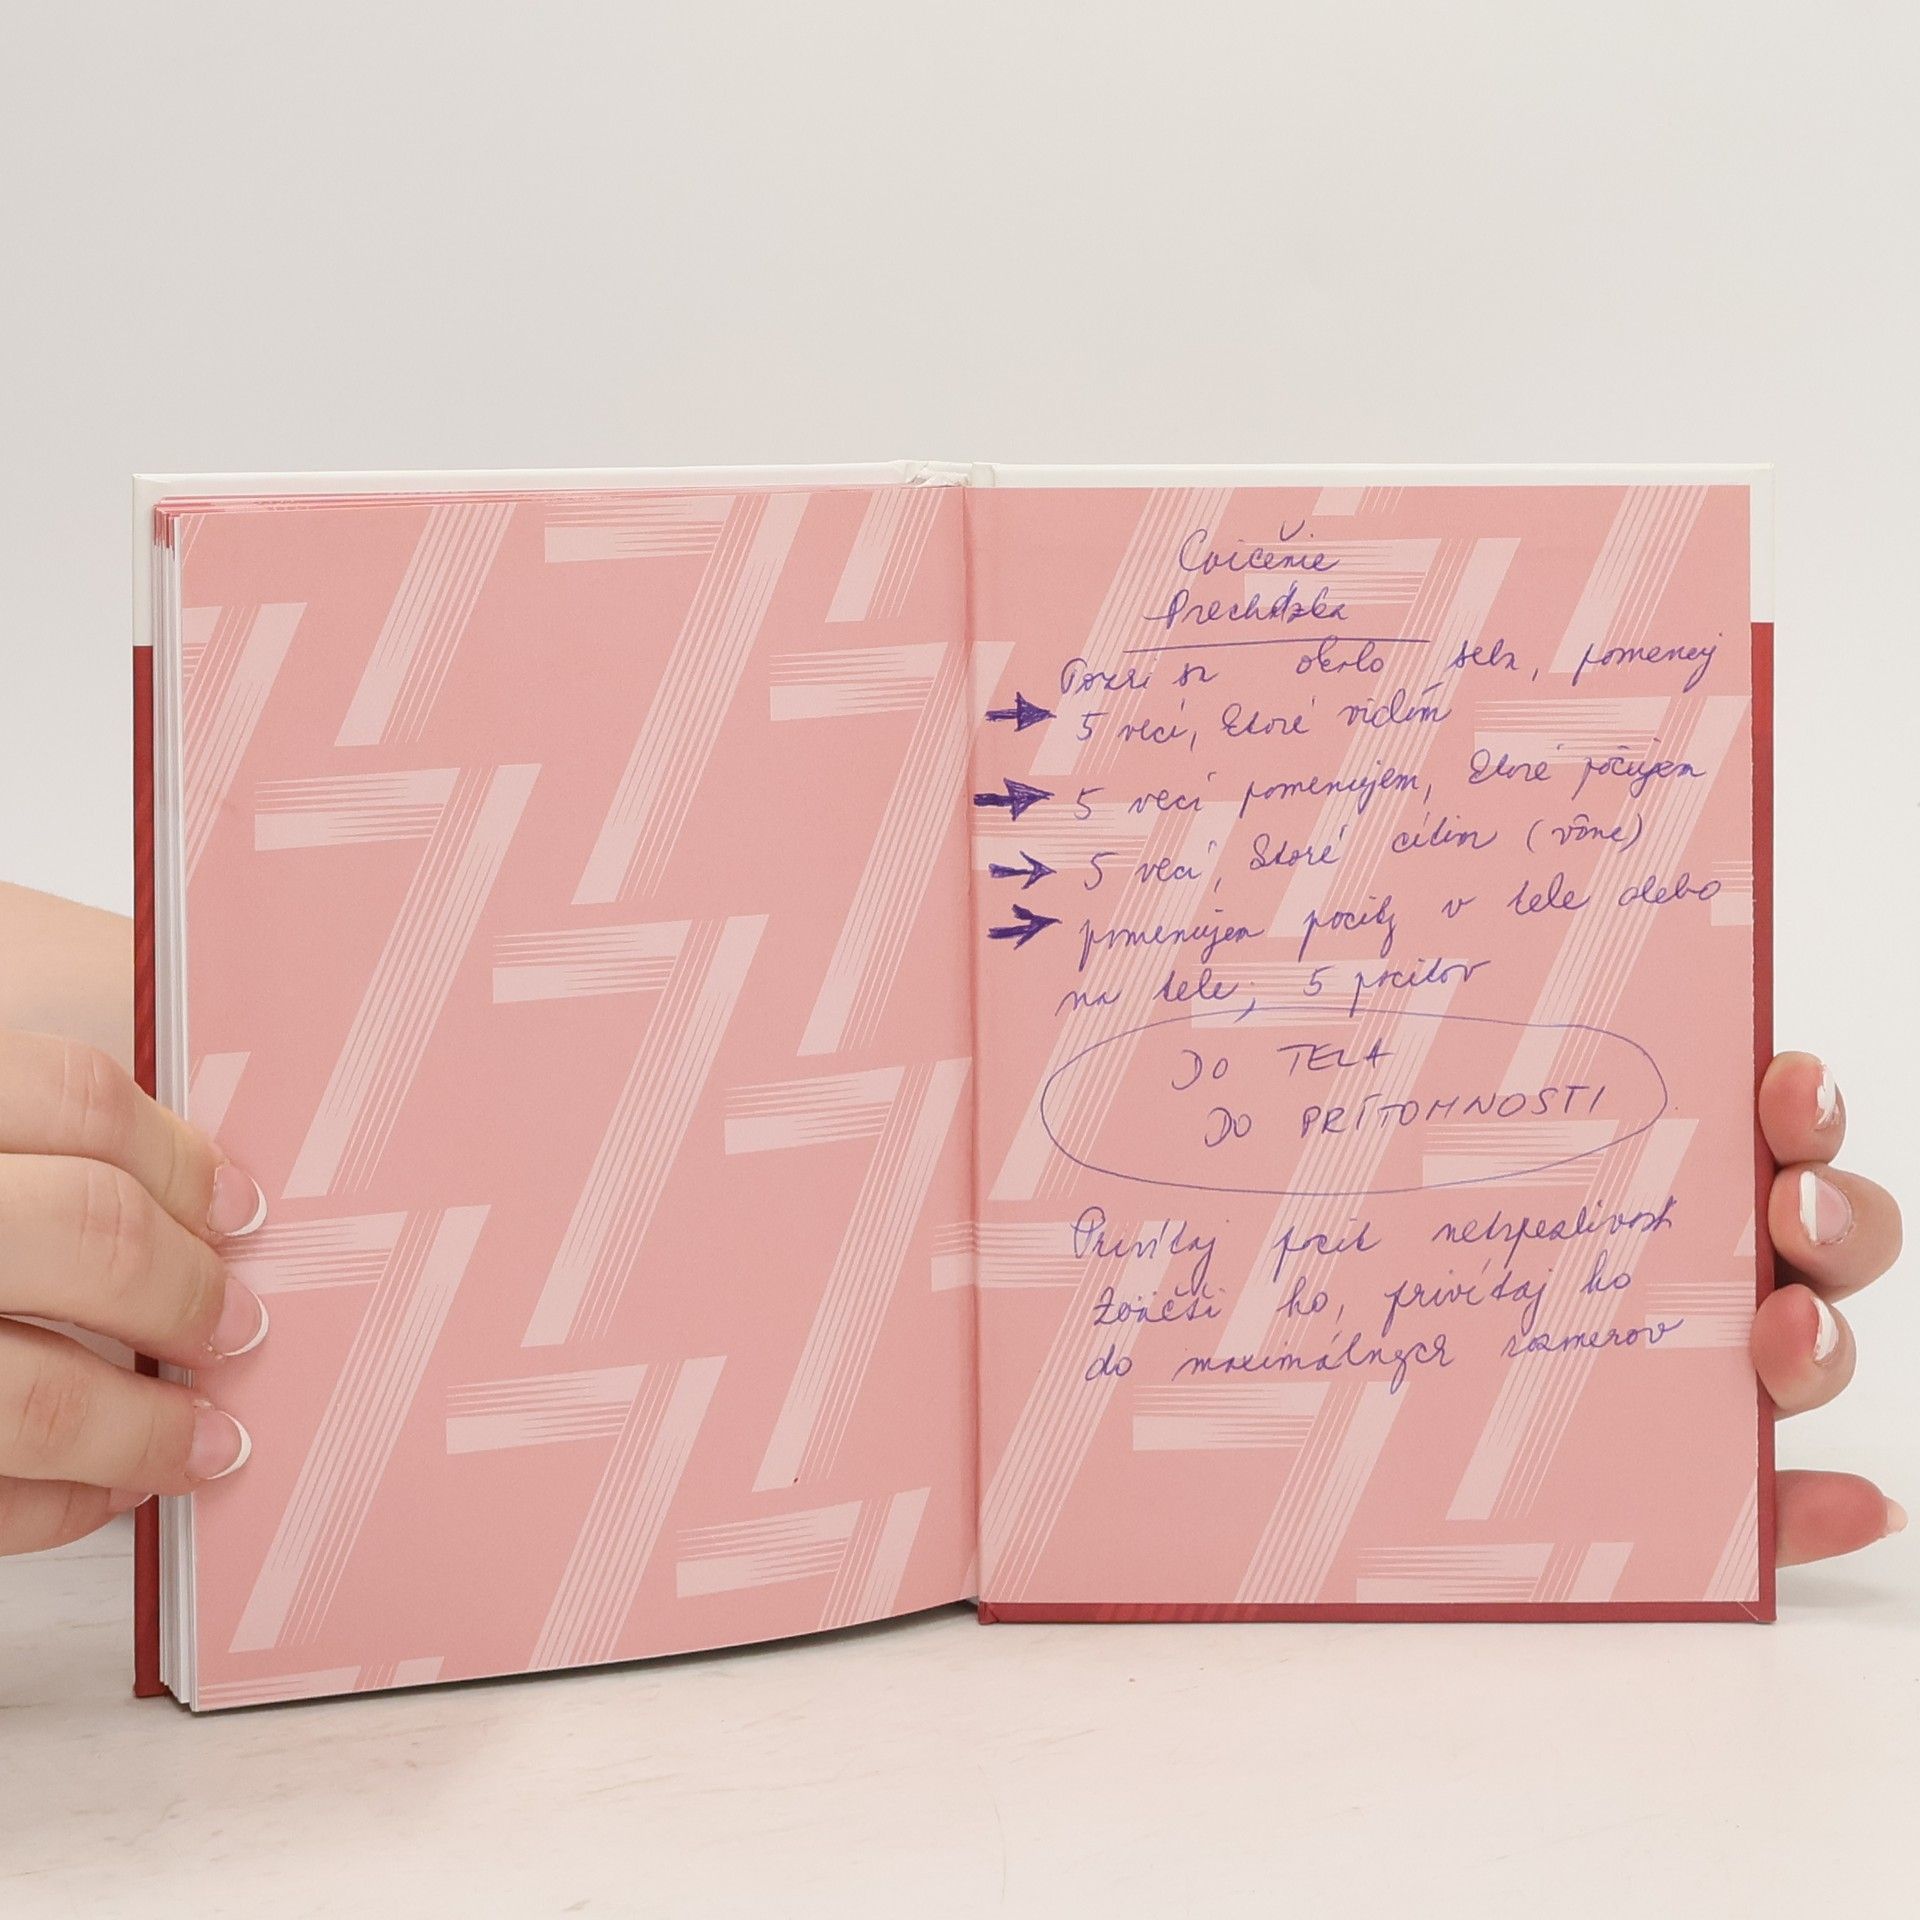 Cvičenie
Prechádzka
Pozri sa okolo seba, pomenuj
5 vecí, ktoré vidím
5 vecí pomenujem, ktoré počujem
5 vecí, ktoré cítim (vône)
pomenujem pocity v tele alebo
na tele, 5 pocitov
DO TELA
DO PRÍTOMNOSTI
Privítaj pocit netrpezlivosti
Zväčši ho, privítaj ho
do maximálnych rozmerov